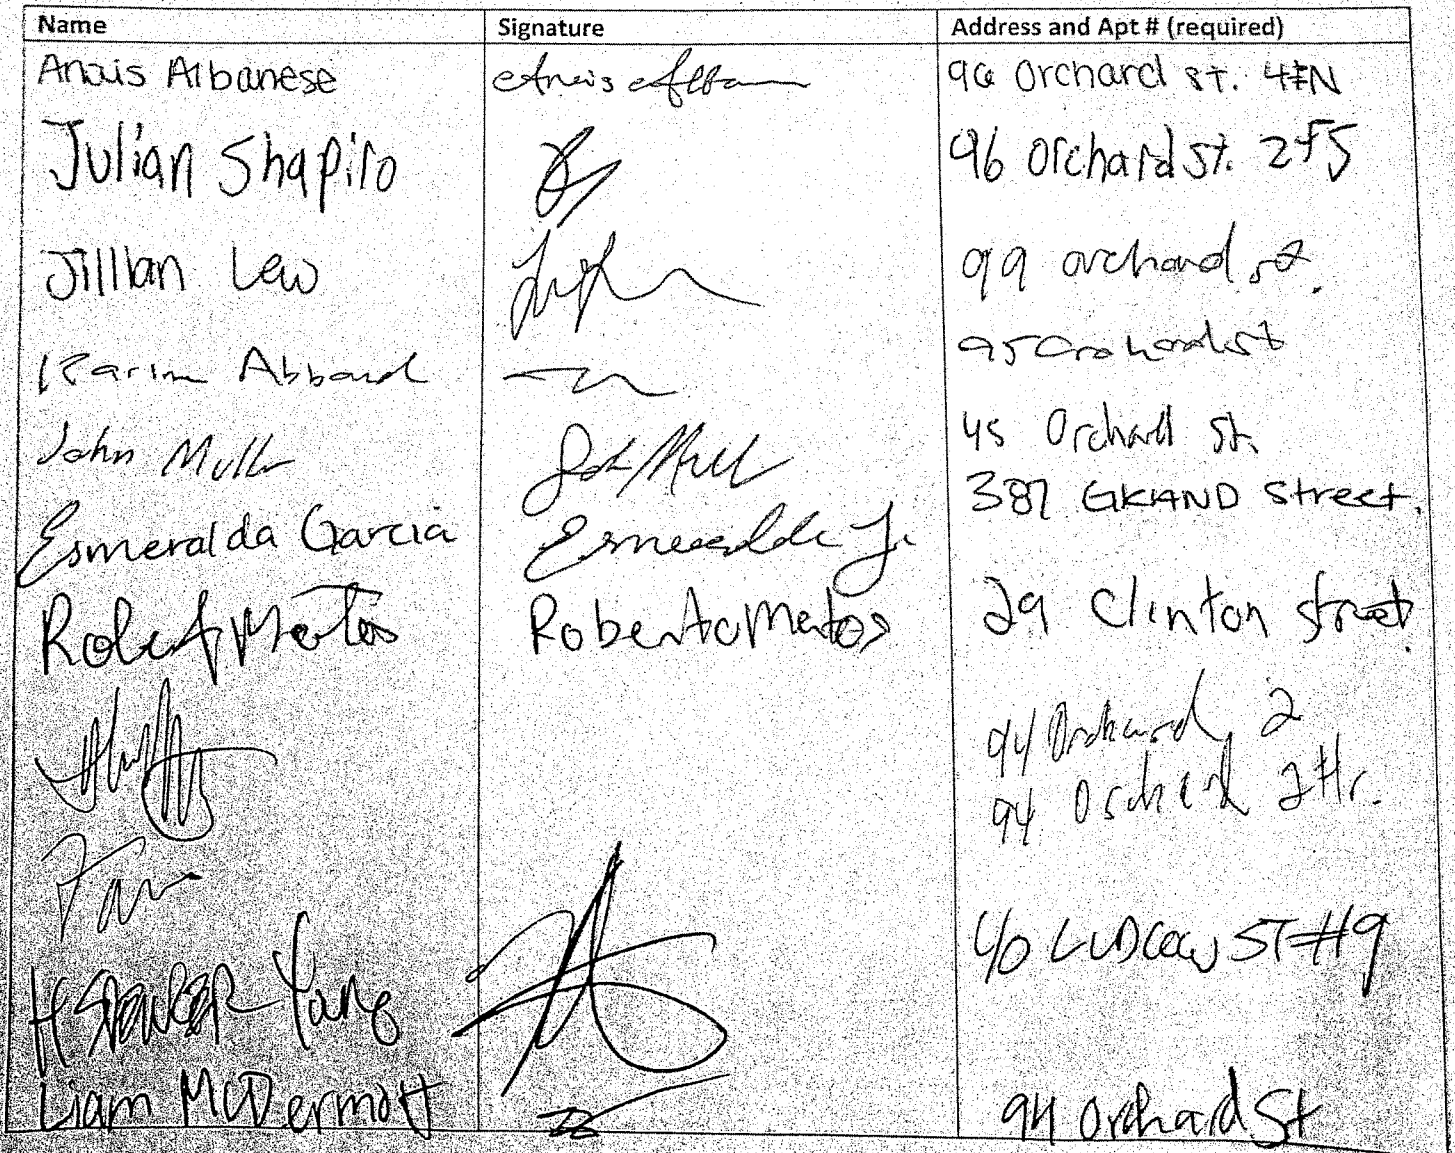 Name Signature Address and Apt # (required)
Anais Albanese Anais Alban 96 Orchard st. 4#N
Julian Shapiro 96 Orchard St. 2F5
Jillian Lew 99 orchard st.
Karim Abboud 95 Orchard St
John Mull John Mull 45 Orchard St.
Esmeralda Garcia Esmeralda G. 387 GRAND Street.
Robert Matos Roberto Matos 29 Clinton street.
94 Orchard 2
94 Orchard 2
H SPENCER Yang 40 LUDLOW ST #9
Liam McDermott 94 Orchard St